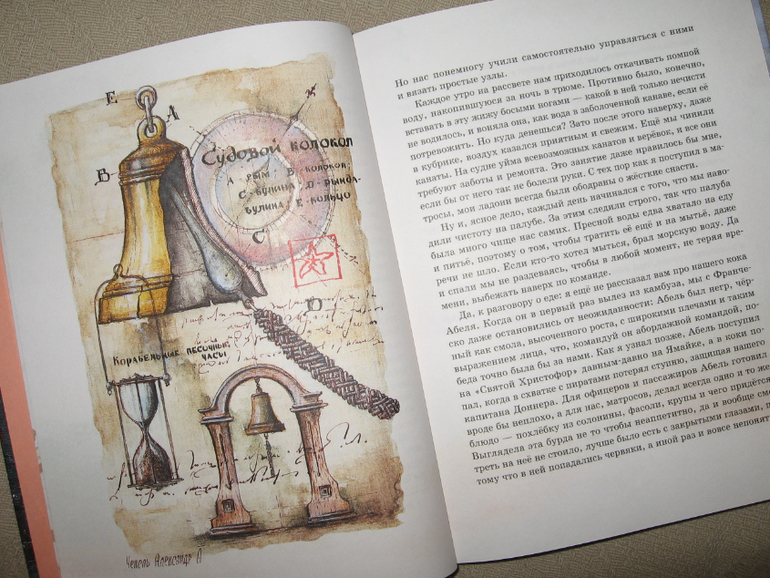 E
A
B
Судовой колокол
А - рым В - колокол
С - булина D - рында-
булина Е - кольцо
C
D
Корабельные песочные
часы
Чепель Александр А
Но нас понемногу учили самостоятельно управляться с ними
и вязать простые узлы.
Каждое утро на рассвете нам приходилось откачивать помпой
воду, накопившуюся за ночь в трюме. Противно было, конечно,
вставать в эту жижу босыми ногами — какой в ней только нечисти
не водилось, и воняла она, как вода в заболоченной канаве, если её
потревожить. Но куда денешься? Зато после этого наверху, даже
в кубрике, воздух казался приятным и свежим. Ещё мы чинили
канаты. На судне уйма всевозможных канатов и верёвок, и все они
требуют заботы и ремонта. Это занятие даже нравилось бы мне,
если бы от него так не болели руки. С тех пор как я поступил в ма-
тросы, мои ладони всегда были ободраны о жёсткие снасти.
Ну и, ясное дело, каждый день начинался с того, что мы наво-
дили чистоту на палубе. За этим следили строго, так что палуба
была много чище нас самих. Пресной воды едва хватало на еду
и питьё, поэтому о том, чтобы тратить её ещё и на мытьё, даже
речи не шло. Если кто-то хотел мыться, брал морскую воду. Да
и спали мы не раздеваясь, чтобы в любой момент, не теряя вре-
мени, выбежать наверх по команде.
Да, к разговору о еде: я ещё не рассказал вам про нашего кока
Абеля. Когда он в первый раз вылез из камбуза, мы с Франче-
ско даже остановились от неожиданности: Абель был негр, чёр-
ный как смола, высоченного роста, с широкими плечами и таким
выражением лица, что, командуй он абордажной командой, по-
беда точно была бы за нами. Как я узнал позже, Абель поступил
на «Святой Христофор» давным-давно на Ямайке, а в коки по-
пал, когда в схватке с пиратами потерял ступню, защищая нашего
капитана Доннера. Для офицеров и пассажиров Абель готовил
вроде бы неплохо, а для нас, матросов, делал всегда одно и то же
блюдо — похлёбку из солонины, фасоли, крупы и чего придётся.
Выглядела эта бурда не то чтобы неаппетитно, да и вообще смо-
треть на неё не стоило, лучше было есть с закрытыми глазами, по-
тому что в ней попадались червяки, а иной раз и вовсе непонят